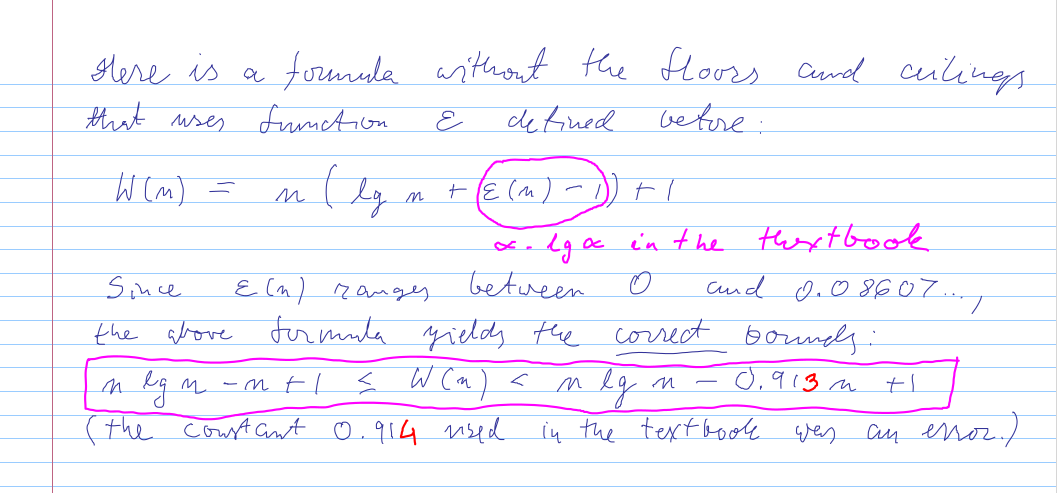 Here is a formula without the floors and ceilings
that uses function ε defined before:
W(n) = n ( lg n + ε(n) - 1 ) + 1
α - lg α in the thextbook
Since ε(n) ranges between 0 and 0.08607...,
the above formula yields the correct bounds:
n lg n - n + 1 ≤ W(n) < n lg n - 0.913 n + 1
(the constant 0.914 used in the textbook was an error.)